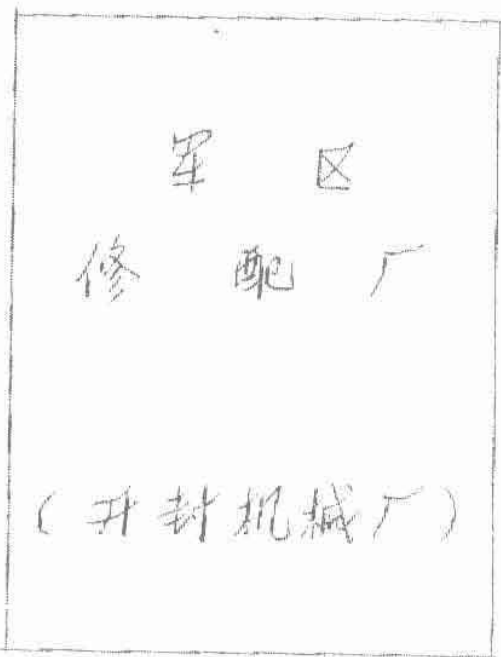 军区
修配厂
(开封机械厂)